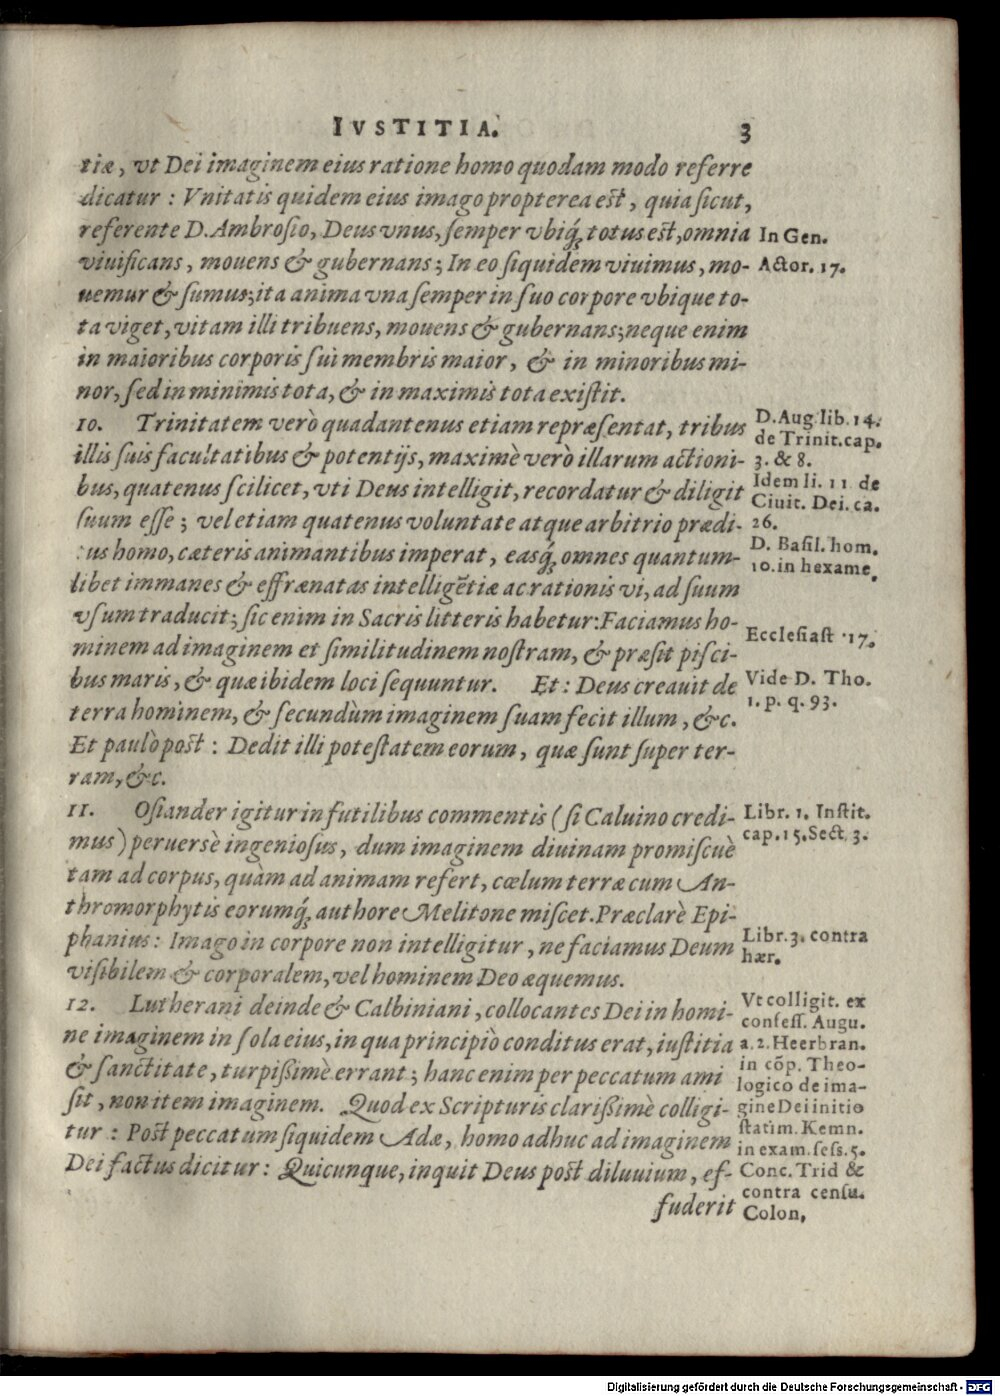 IVSTITIA. 3
tiæ, vt Dei imaginem eius ratione homo quodam modo referre
dicatur : Vnitatis quidem eius imago propterea est, quia sicut,
referente D. Ambrosio, Deus vnus, semper vbiq́; totus est, omnia
In Gen.
viuificans, mouens & gubernans; In eo siquidem viuimus, mo-
Actor. 17.
uemur & sumus; ita anima vna semper in suo corpore vbique to-
ta viget, vitam illi tribuens, mouens & gubernans; neque enim
in maioribus corporis sui membris maior, & in minoribus mi-
nor, sed in minimis tota, & in maximis tota existit.
10. Trinitatem verò quadantenus etiam repræsentat, tribus
illis suis facultatibus & potentijs, maximè verò illarum actioni-
bus, quatenus scilicet, vti Deus intelligit, recordatur & diligit
suum esse ; vel etiam quatenus voluntate atque arbitrio prædi-
tus homo, cæteris animantibus imperat, easq́; omnes quantum-
libet immanes & effrænatas intelligẽtiæ ac rationis vi, ad suum
vsum traducit; sic enim in Sacris litteris habetur: Faciamus ho-
minem ad imaginem et similitudinem nostram, & præsit pisci-
bus maris, & quæ ibidem loci sequuntur. Et : Deus creauit de
terra hominem, & secundùm imaginem suam fecit illum, &c.
Et paulò post : Dedit illi potestatem eorum, quæ sunt super ter-
ram, &c.
D. Aug. lib. 14.
de Trinit. cap.
3. & 8.
Idem li. 11 de
Ciuit. Dei. ca.
26.
D. Basil. hom.
10. in hexame.
Ecclesiast. 17.
Vide D. Tho.
1. p. q. 93.
11. Osiander igitur in futilibus commentis (si Caluino credi-
mus) peruersè ingeniosus, dum imaginem diuinam promiscuè
tam ad corpus, quàm ad animam refert, cœlum terræ cum An-
thromorphytis eorumq́; authore Melitone miscet. Præclarè Epi-
phanius : Imago in corpore non intelligitur, ne faciamus Deum
visibilem & corporalem, vel hominem Deo æquemus.
Libr. 1. Instit.
cap. 15. Sect. 3.
Libr. 3. contra
hær.
12. Lutherani deinde & Calbiniani, collocantes Dei in homi-
ne imaginem in sola eius, in qua principiò conditus erat, iustitia
& sanctitate, turpissimè errant ; hanc enim per peccatum ami
sit, non item imaginem. Quod ex Scripturis clarissimè colligi-
tur : Post peccatum siquidem Adæ, homo adhuc ad imaginem
Dei factus dicitur : Quicunque, inquit Deus post diluuium, ef-
fuderit
Vt colligit. ex
confess. Augu.
a. 2. Heerbran.
in cõp. Theo-
logico de ima-
gine Dei initio
statim. Kemn.
in exam. sess. 5.
Conc. Trid &
contra censu.
Colon.
Digitalisierung gefördert durch die Deutsche Forschungsgemeinschaft - DFG